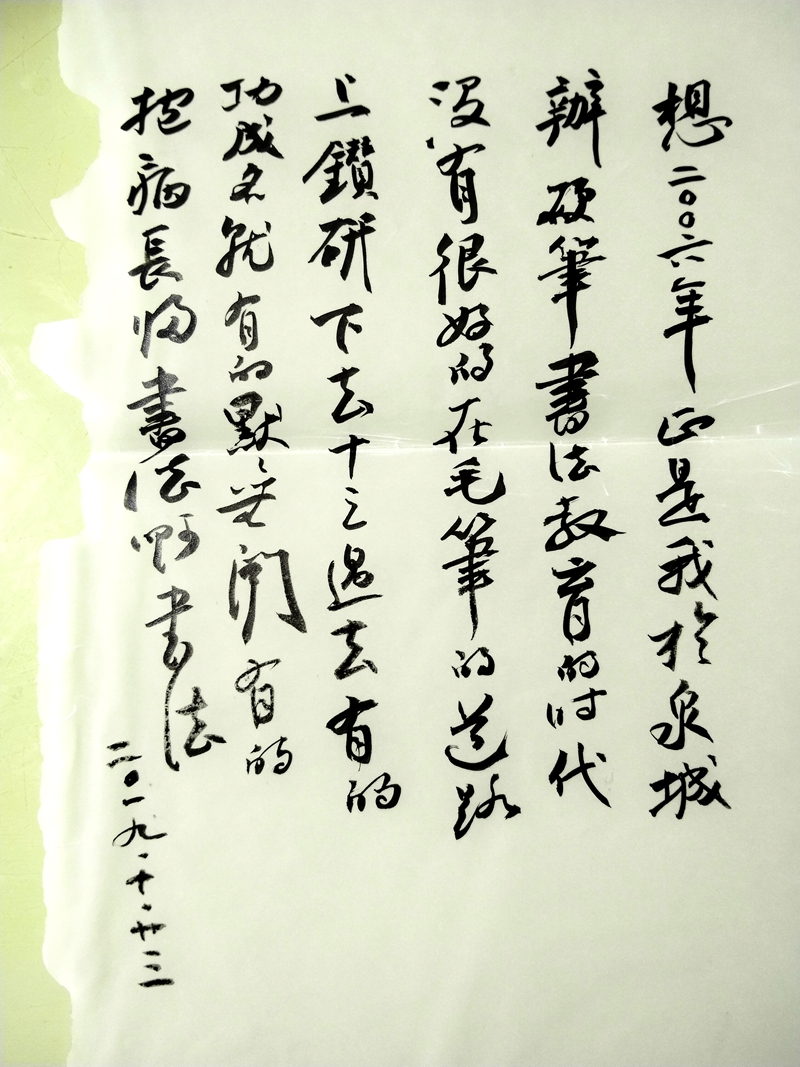 想二〇〇六年正是我於泉城
辦硬筆書法教育的时代
没有很好的在毛筆的道路
上鑽研下去十三過去有的
功成名就有的默々無聞有的
抱病長归書法啊書法
二〇一九.十.廿三